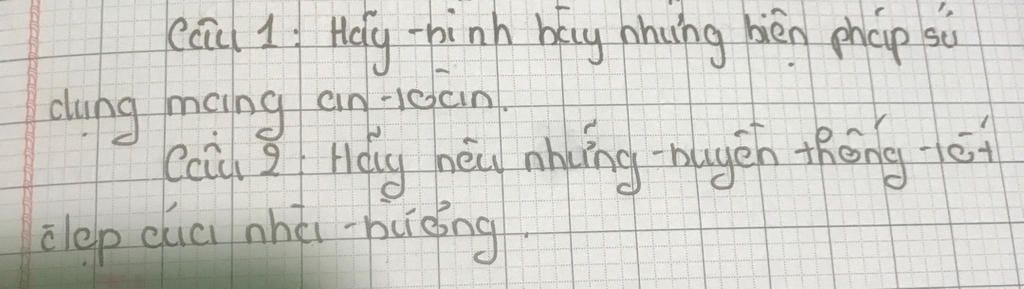 Câu 1: Hãy trình bày những biện pháp sử
dụng mạng an toàn.
Câu 2: Hãy nêu những truyền thống tốt
đẹp của nhà trường.